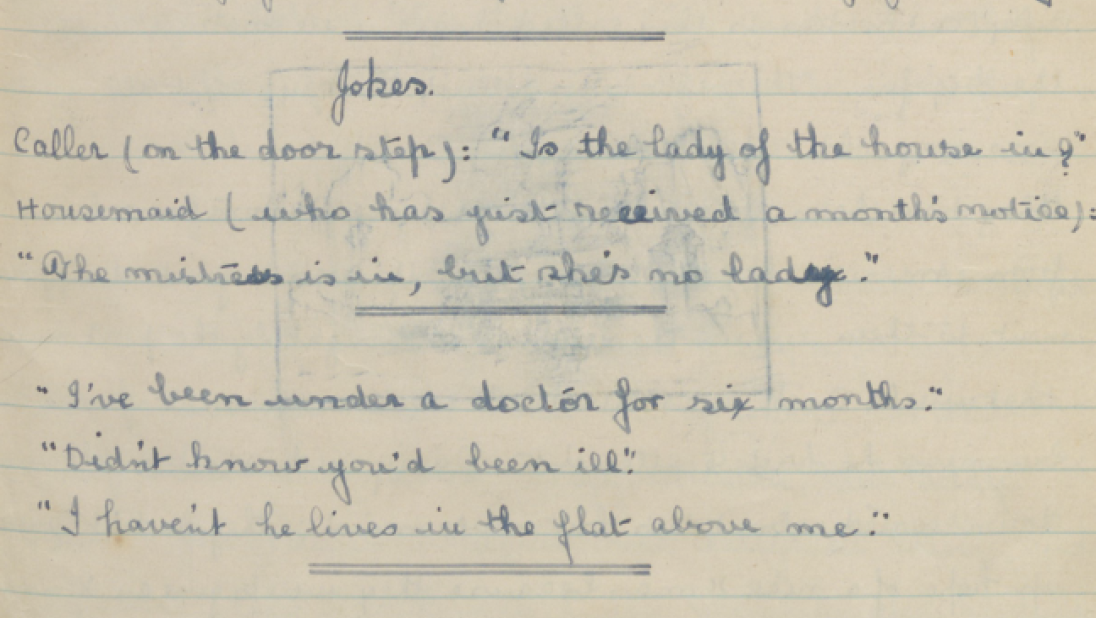 Jokes.
Caller (on the door step): "Is the lady of the house in?"
Housemaid (who has just received a month's notice):
"The mistress is in, but she's no lady."
"I've been under a doctor for six months."
"Didn't know you'd been ill."
"I haven't he lives in the flat above me."